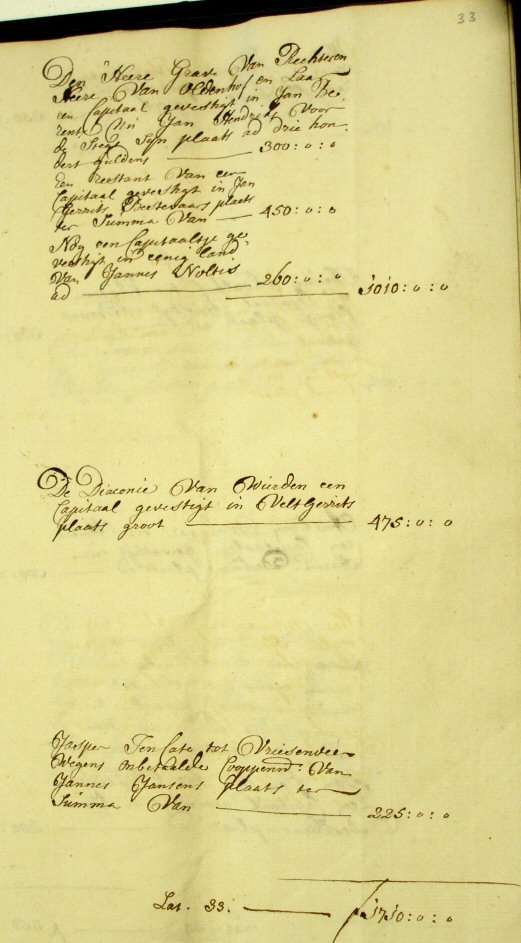 33
Den Heere Grave Van Rechteren
Heere Van Oldenhof en Laar
een Capitaal gevestigt in Jan
rent Nu Jan Hendrik Voor
de Stege Sijn plaats ad drie hon-
dert guldens 300:0:0
Een Restant Van een
Capitaal gevestigt in Jan
Gerrits plaats
ter Summa Van 450:0:0
Nog een Capitaaltje ge-
vestigt in eenig land
Van Jannes Noltis
ad 260:0:0 1010:0:0
De Diaconie Van Wierden een
Capitaal gevestigt in Velt Gerrits
plaats groot 475:0:0
Jasper Ten Cate tot Vriesenveen
Wegens onbetaalde Cooppenn: Van
Jannes Jansens plaats ter
Summa Van 225:0:0
Lat. 33. f 1710:0:0